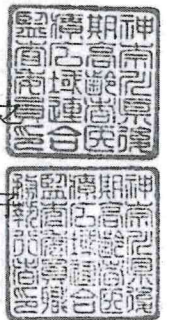 神奈川県後
期高齢者医
療広域連合
監査委員印
神奈川県後
期高齢者医
療広域連合
監査委員職
務執行者印